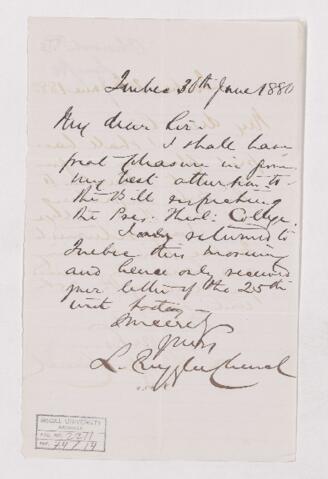 Quebec 30th June 1880
My dear Sir.
I shall have
great pleasure in giving
my best attention to
the Bill respecting
the Pres. Theol. College.
I only returned to
Quebec this morning
and hence only received
your letter of the 25th
inst today
Sincerely
yours
L. Ruggles Church
McGILL UNIVERSITY
ARCHIVES
ACC. NO. 2211
REF.